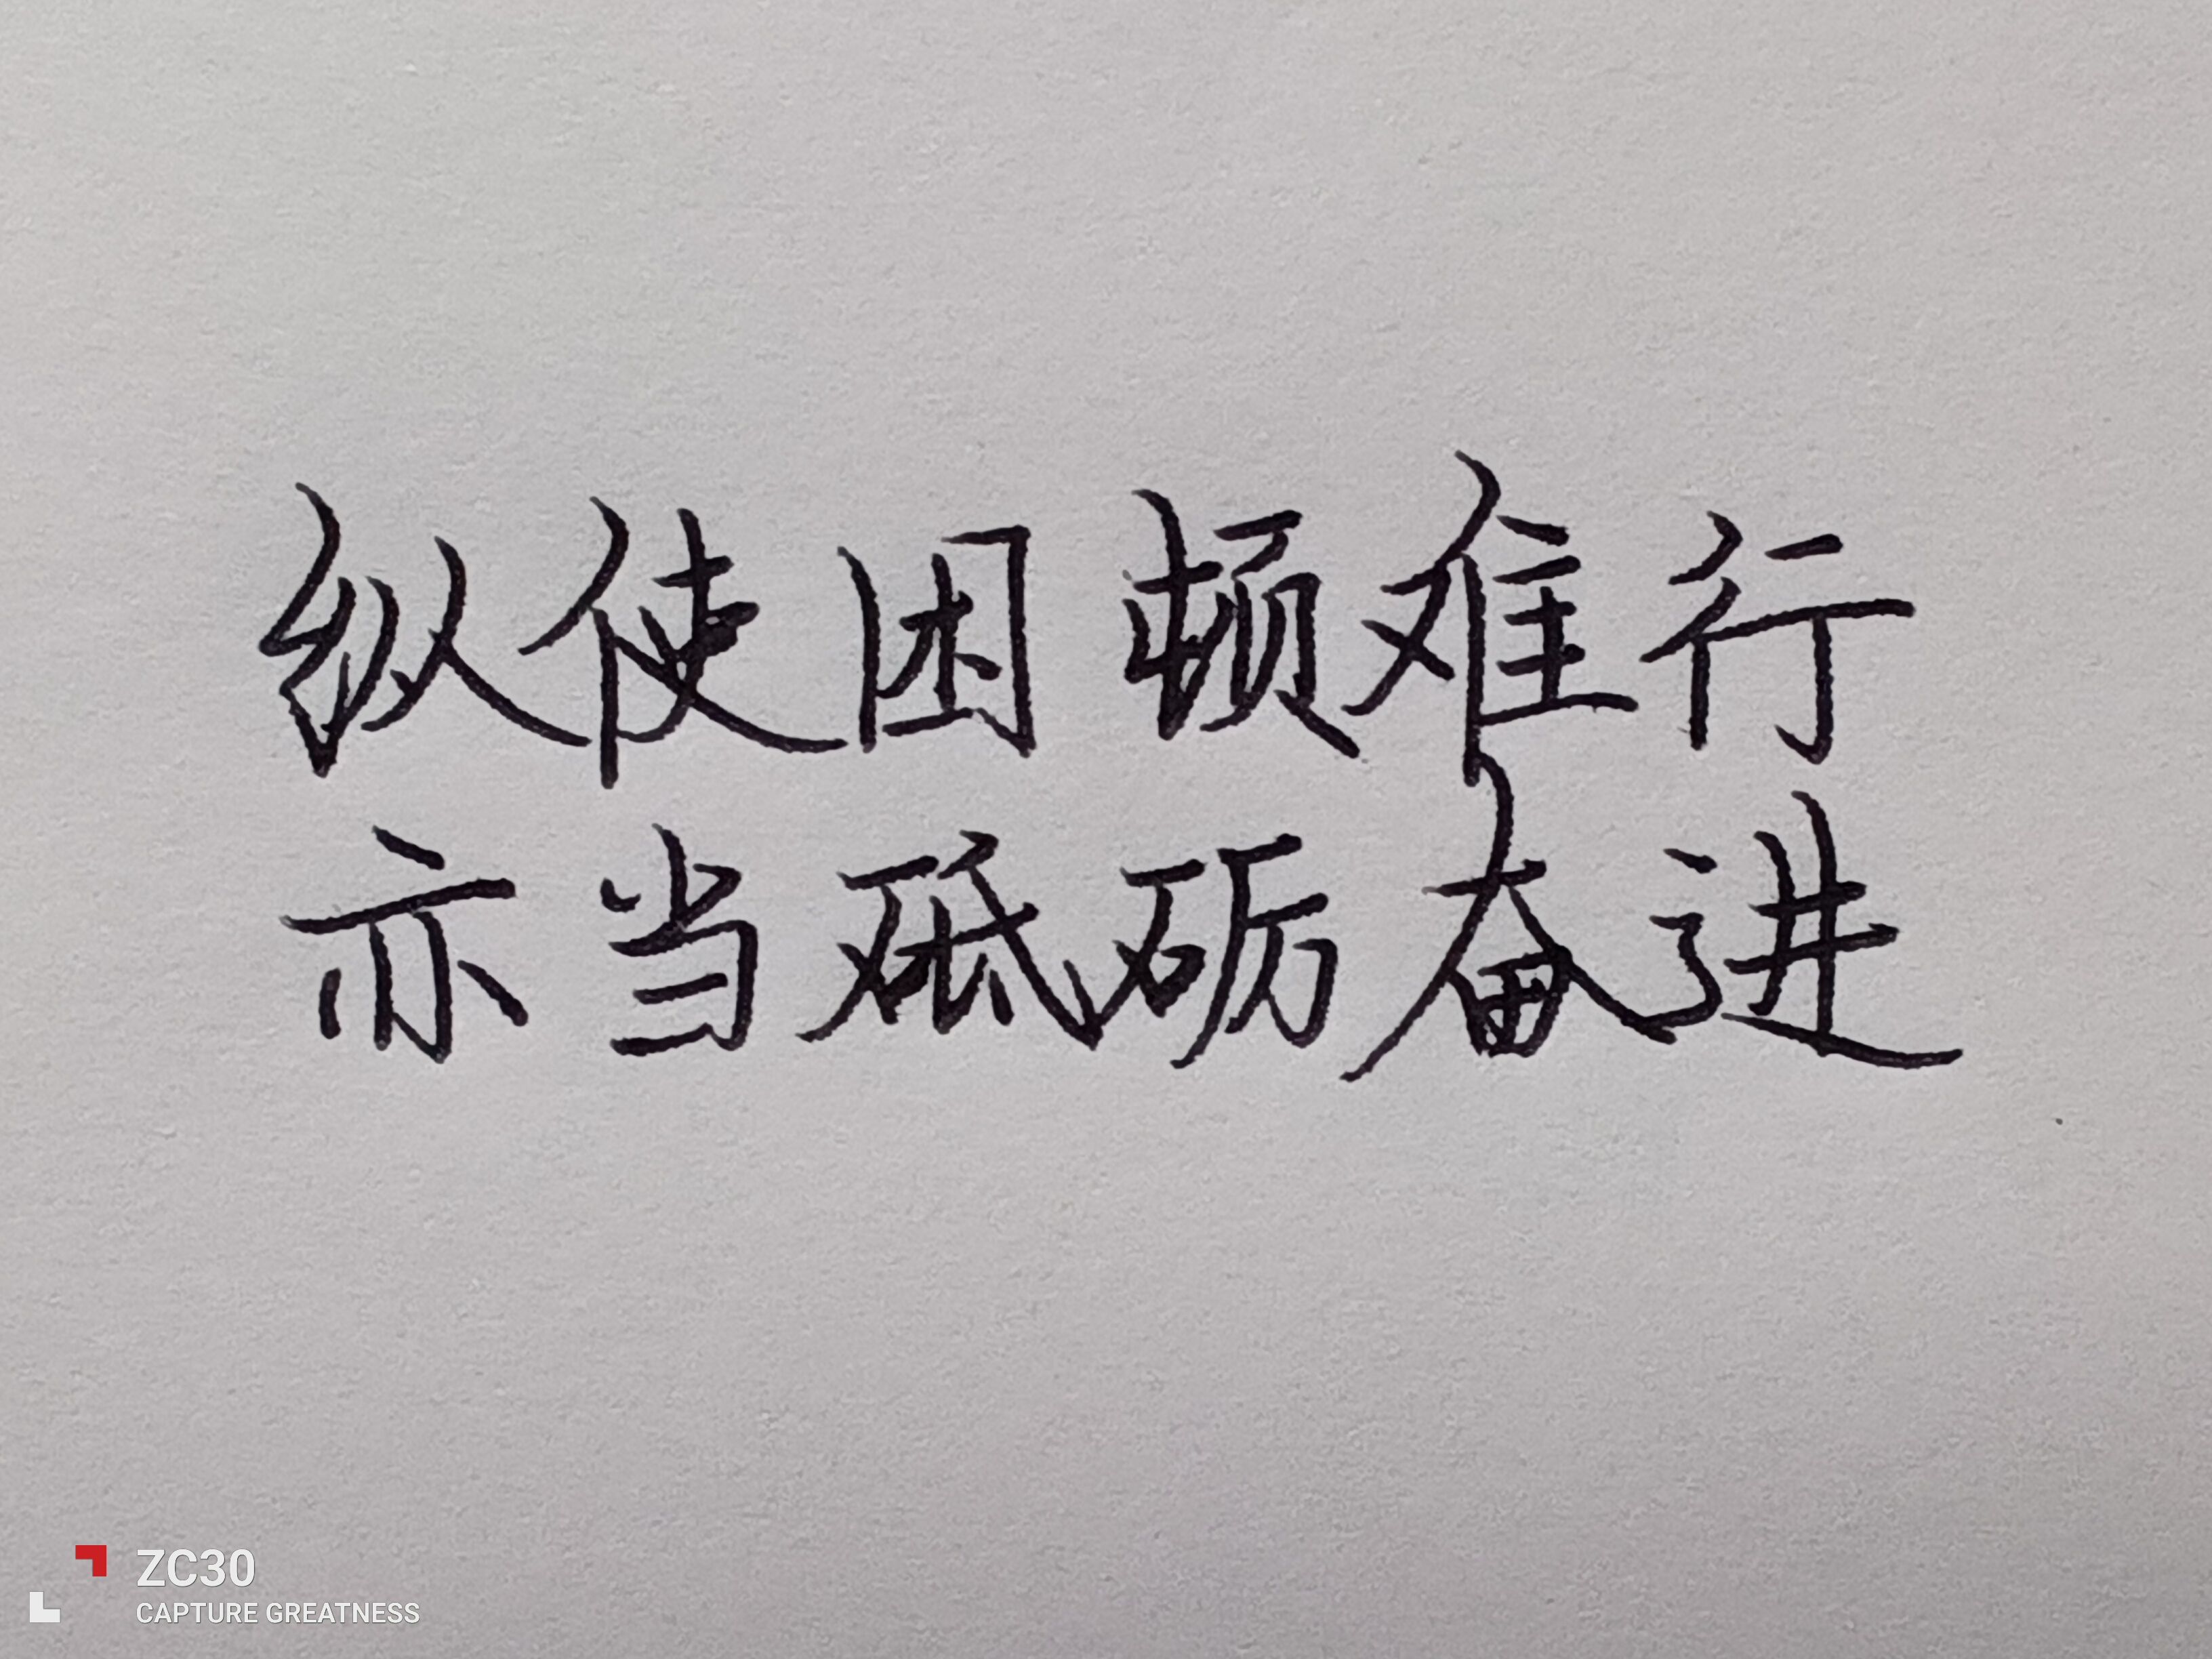 纵使困顿难行
亦当砥砺奋进
ZC30
CAPTURE GREATNESS